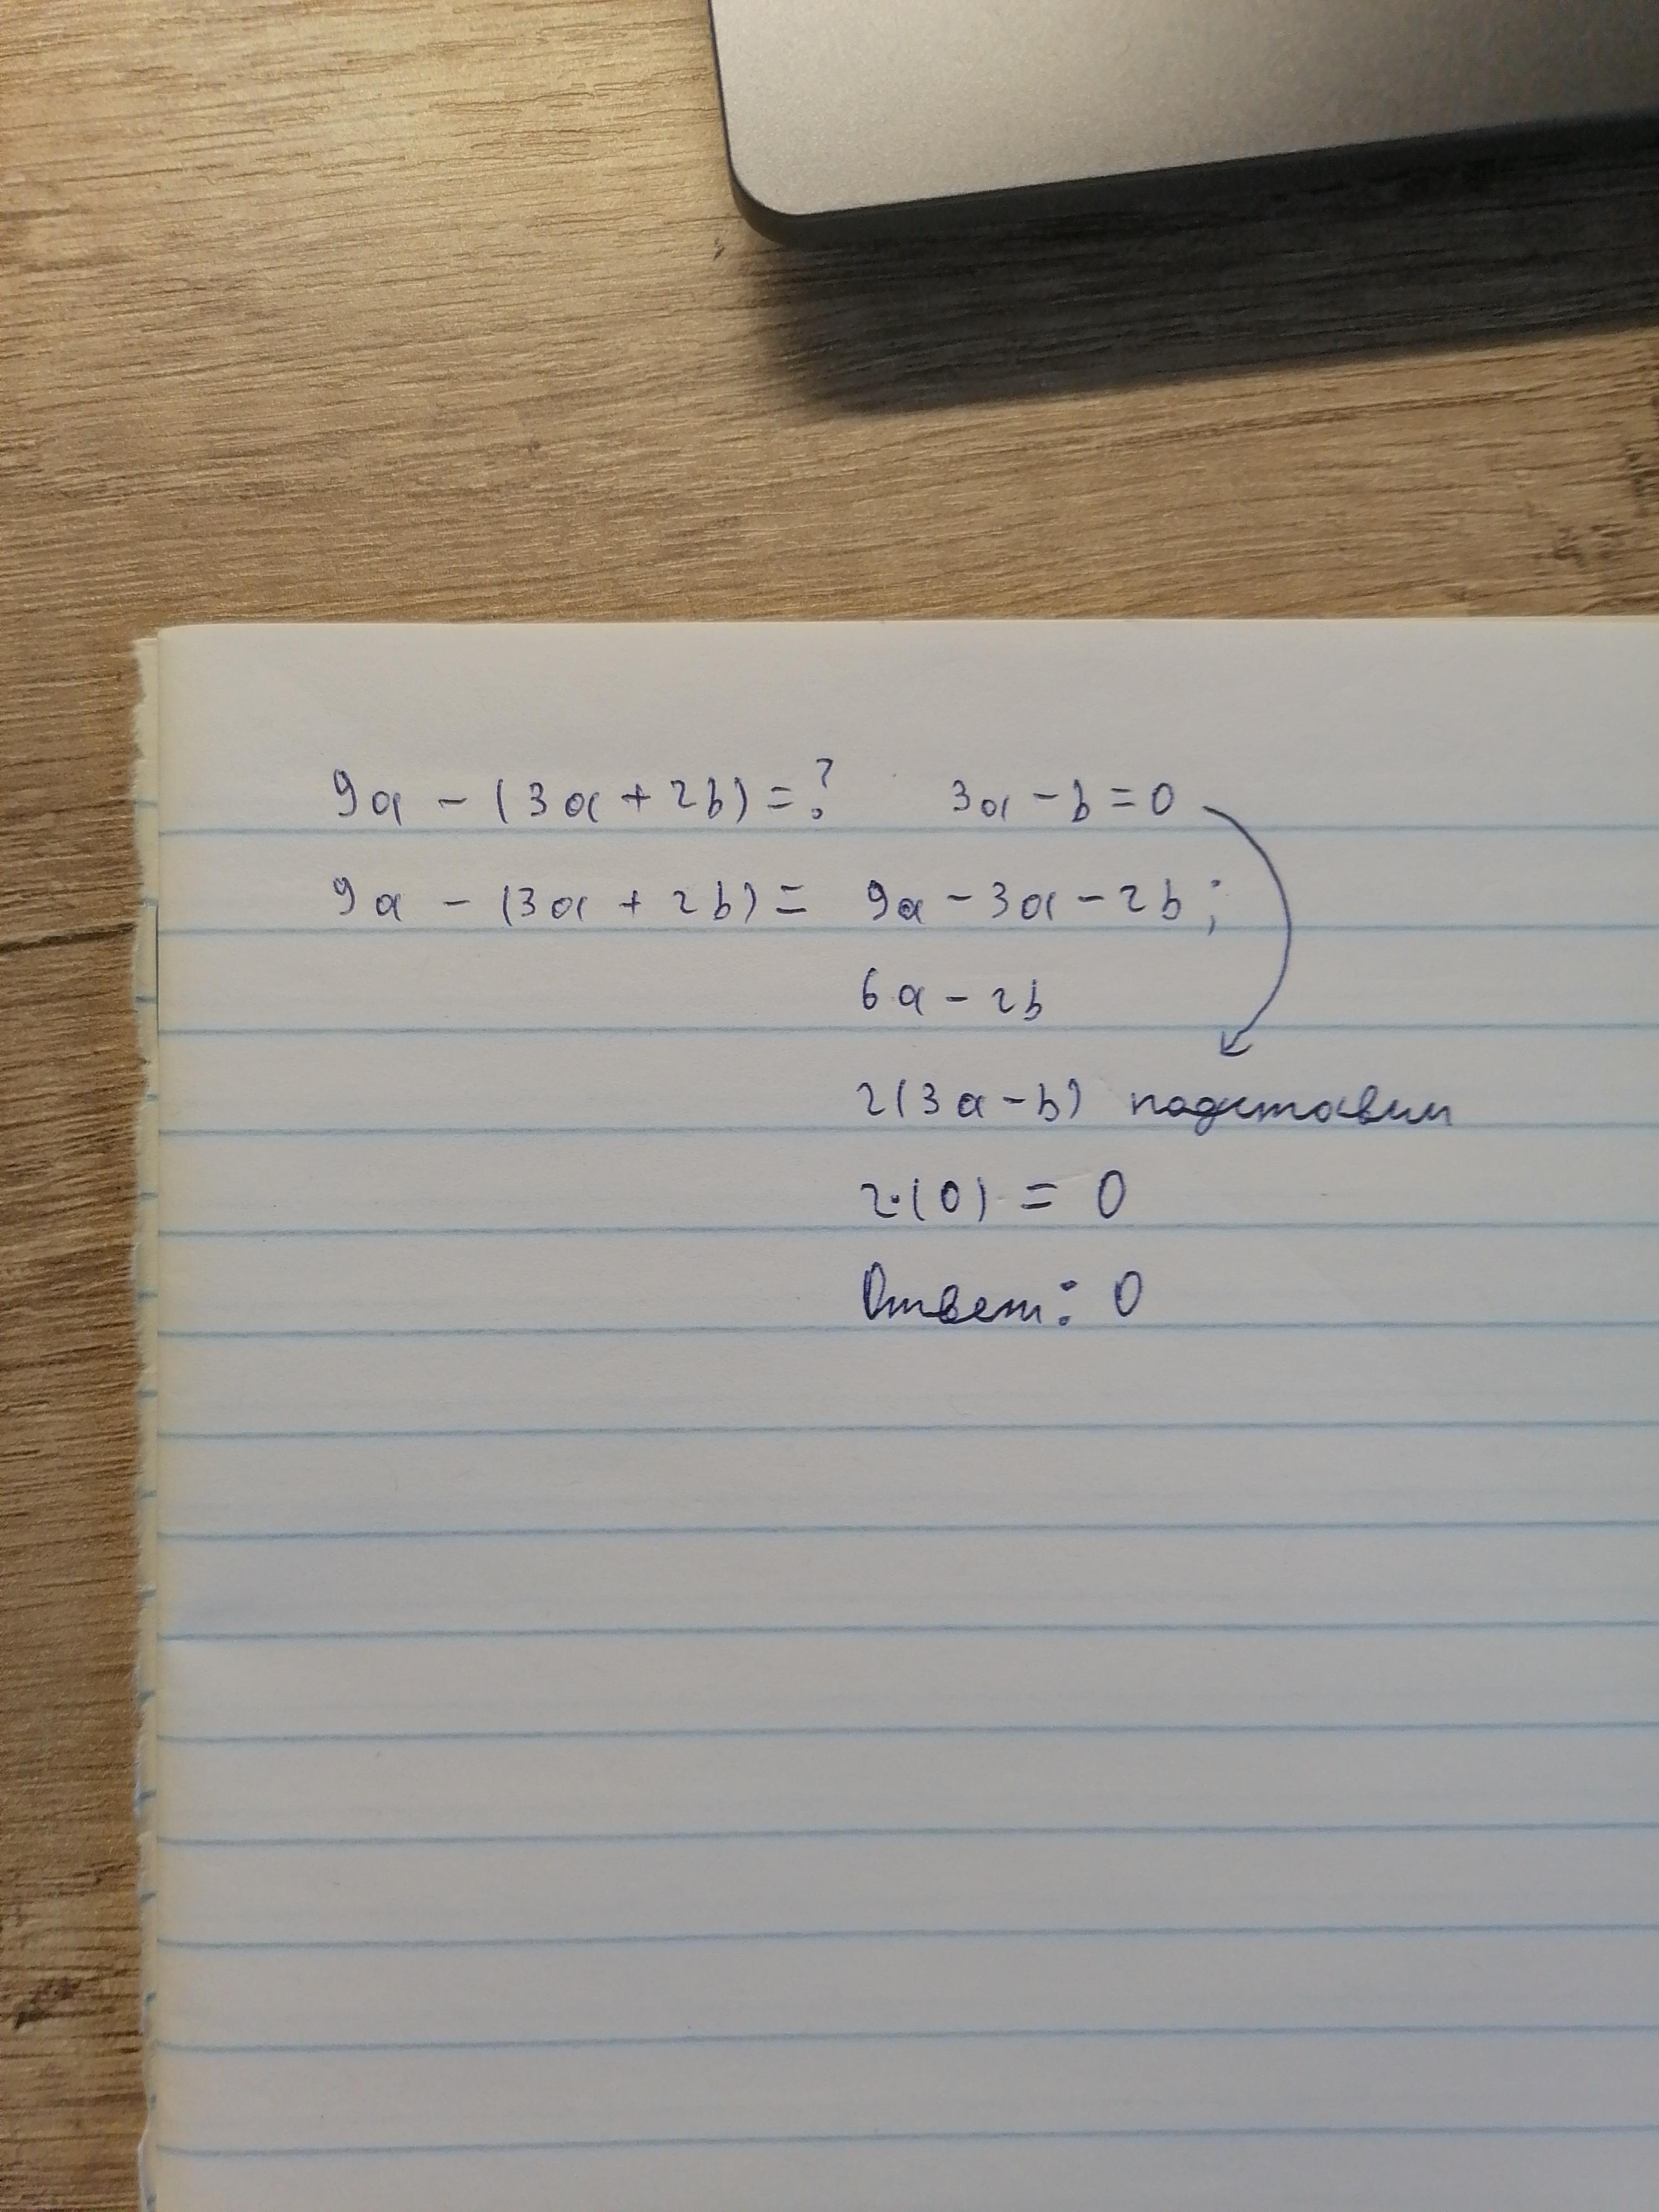 9a - (3a + 2b) = ? 3a - b = 0
9a - (3a + 2b) = 9a - 3a - 2b;
6a - 2b
2(3a - b) подставим
2·(0) = 0
Ответ: 0